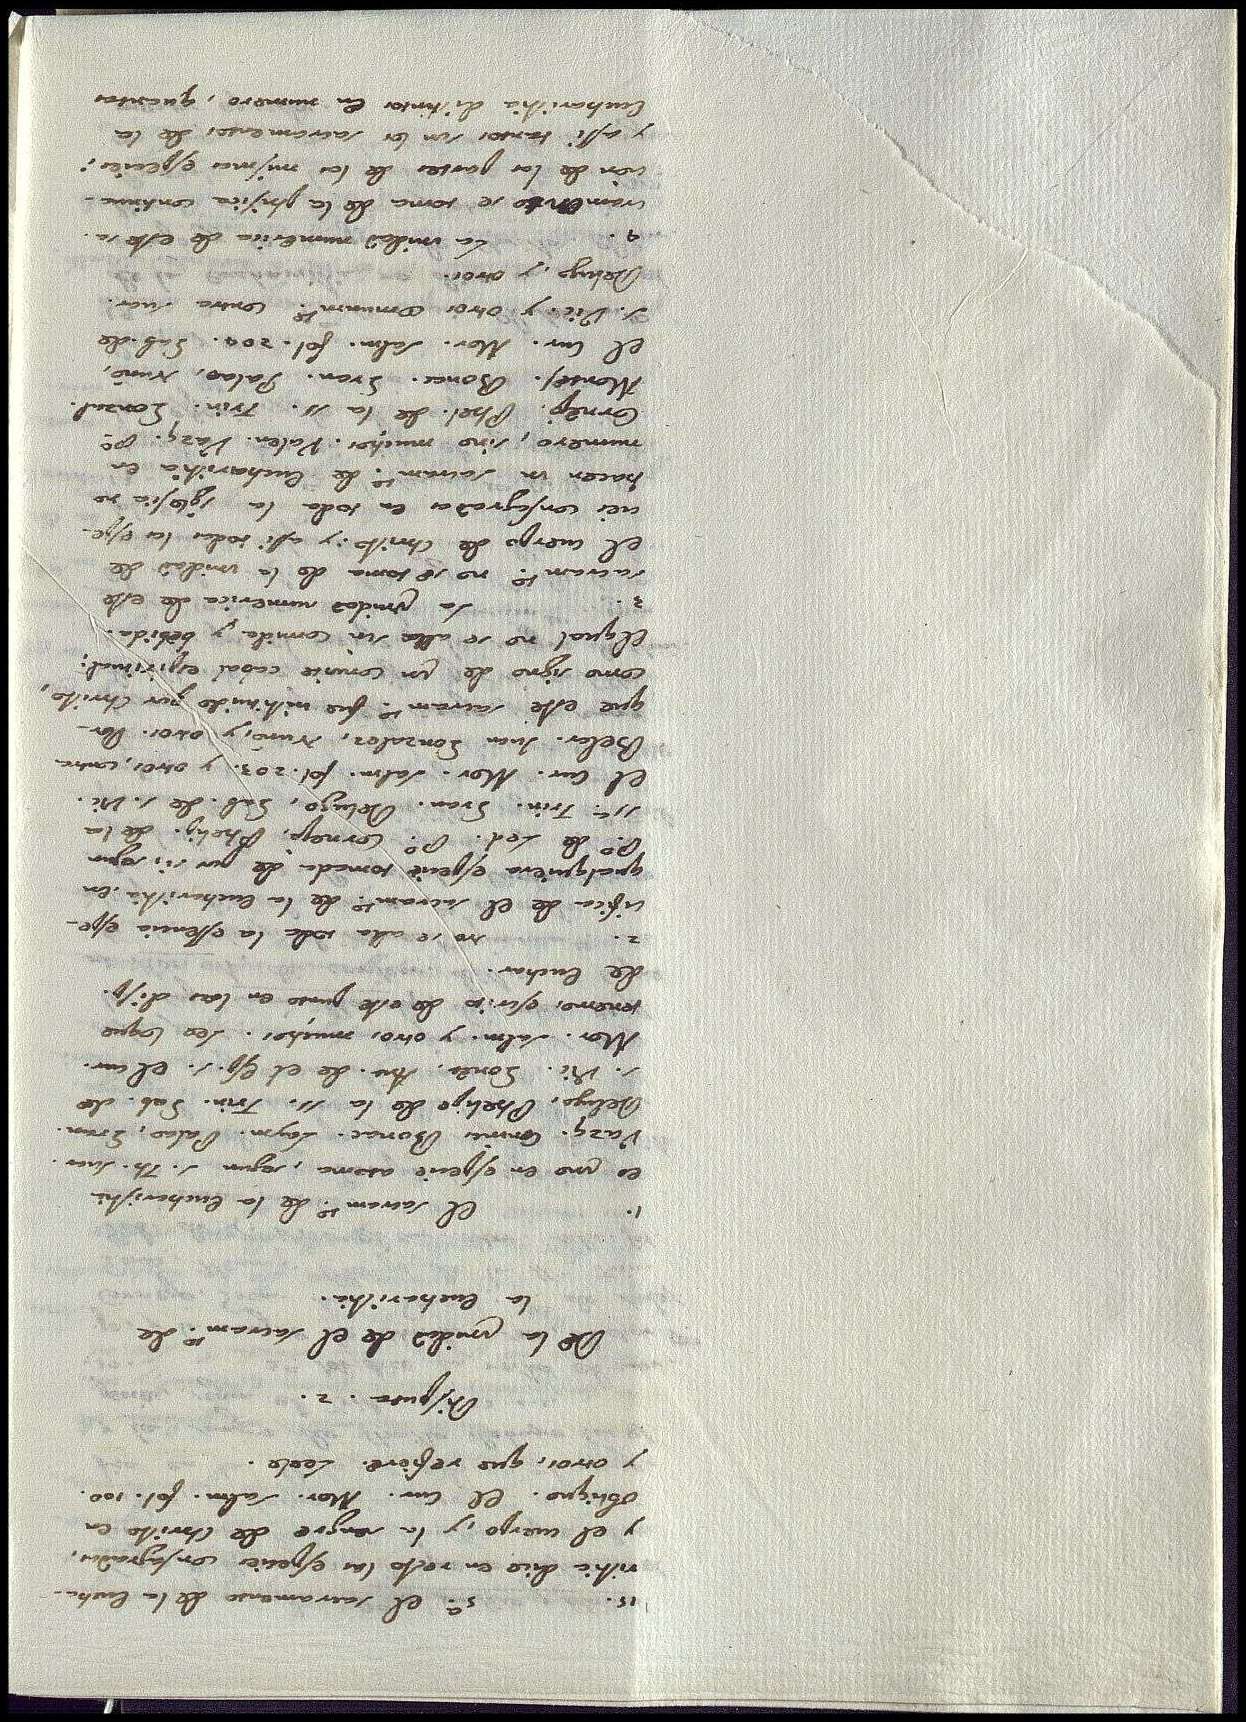 15. 5ª. El sacramento de la Eucha-
ristia dice en recto las especies consagradas,
y el cuerpo, y la sangre de Christo en
obliquo. El Cur. Mor. Salm. fol. 100.
y otros, que refiere. Leele.
Disputa. 2.
De la vnidad de el sacramto. de
la Eucharistia.
1. El sacramto. de la Eucharistia
es vno en especie atoma, segun S. Th. Suar.
Vazq. Bonac. Laym. Palao, Gran.
Delugo, Phelipe de la SS. Trin. Gab. de
S. Vic. Gonet. de el Esp. S. el cur.
Mor. Salm. y otros muchos. Lea loque
tenemos escrito de este punto en las disp.
de Euchar.
2. no se alla toda la essencia espe-
cifica de el sacramto. de la Eucharistia en
qualquiera especie tomada de por si; segun
Po. de Led. Po. Cornejo, Phelip. de la
SSma. Trin. Gran. Delugo, Gab. de S. Vi.
el Cur. Mor. Salm. fol. 203. y otros, contra
Belar. Juan Gonzalez, Nuño, y otros. Por-
que este sacramto. fue instituido por Christo,
como signo de vn convite cabal espiritual;
el qual no se alla sin comida y bebida.
3. La vnidad numerica de este
sacramto. no se toma de la vnidad de
el cuerpo de Christo, y assi todas las espe-
cies consagradas en toda la Iglesia no
hacen vn sacramto. de Eucharistia en
numero, sino muchos. Valen. Vazq. Po.
Cornejo. Phel. de la SS. Trin. Gonzal.
Montes. Bonac. Gran. Palao, Nuño,
el Cur. Mor. Salm. fol. 200. Gab. de
S. Vic. y otros comunmte. contra Suar.
Delugo, y otros.
4. La vnidad numerica de este sa-
cramento se toma de la phisica continua-
cion de las partes de las mismas especies;
y assi tantos son los sacramentos de la
Eucharistia distintos en numero, quantas